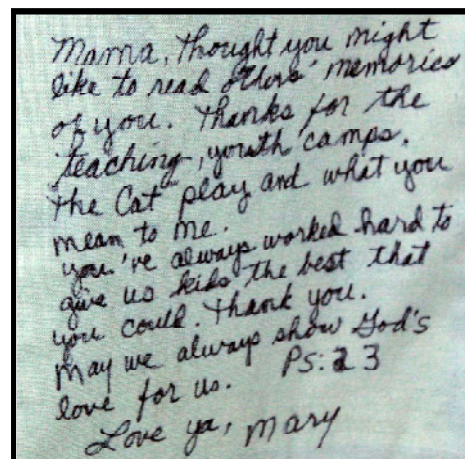 Mama, Thought you might
like to read others' memories
of you. Thanks for the
teaching, youth camps.
The Cat play and what you
mean to me.
You've always worked hard to
give us kids the best that
you could. Thank you.
May we always show God's
love for us. Ps: 23
Love ya, Mary